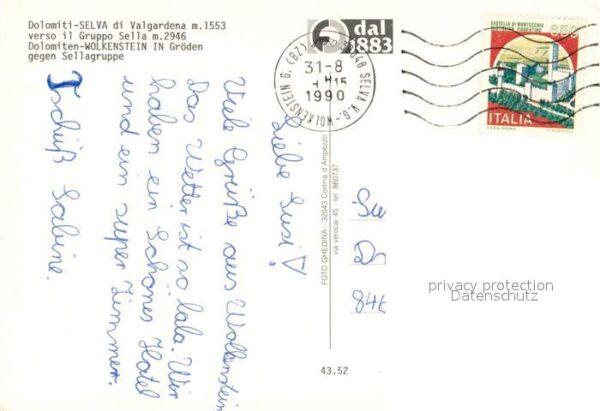 Dolomiti-SELVA di Valgardena m.1553
verso il Gruppo Sella m.2946
Dolomiten-WOLKENSTEIN IN Gröden
gegen Sellagruppe
dal
1883
31-8
1990
SELVA V.G. - WOLKENSTEIN G. (BZ)
CASTELLO DI MONTECCHIO
CASTIGLION FIORENTINO
650
ITALIA
Liebe Susi!
Viele Grüße aus Wolkenstein
Das Wetter ist so lala. Wir
haben ein Schönes Hotel
und ein super Zimmer.
Tschüß Sabine.
FOTO GHEDINA - 32043 Cortina d'Ampezzo
via verocai 45 tel. 860737
Su
Dr
846
privacy protection
Datenschutz
43.52